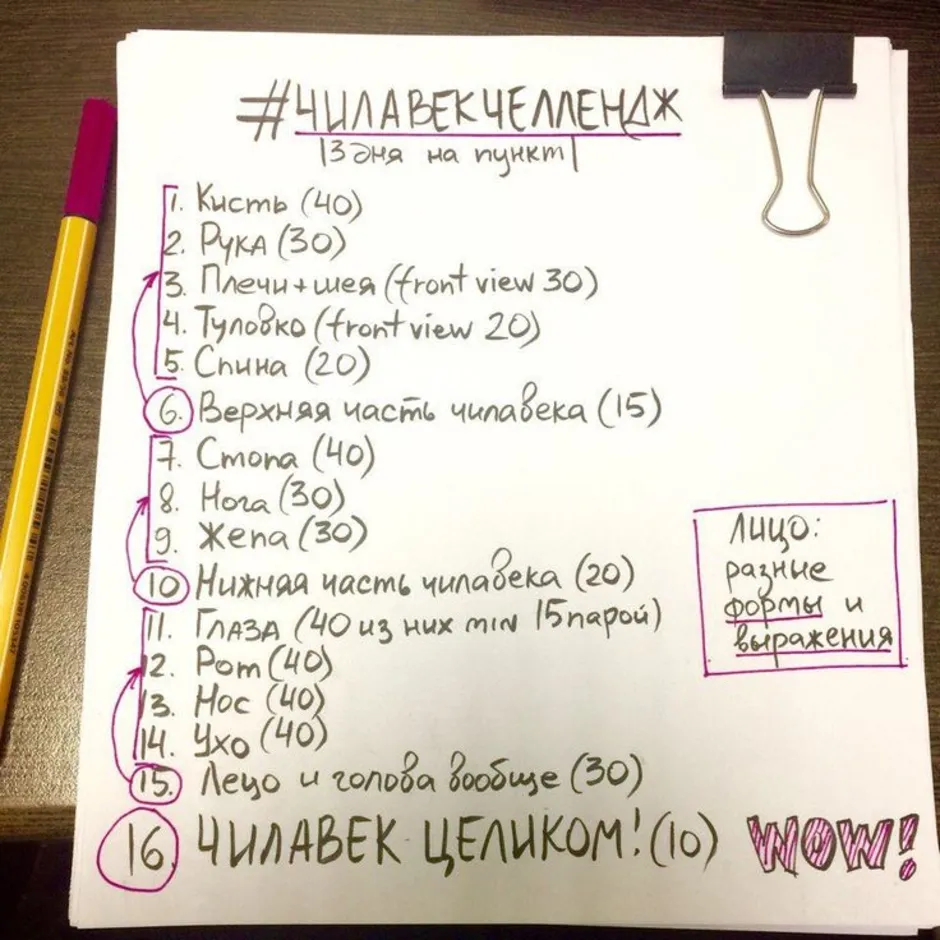 #ЧИЛАВЕКЧЕЛЛЕНДЖ
|3 дня на пункт|
1. Кисть (40)
2. Рука (30)
3. Плечи+шея (front view 30)
4. Туловко (front view 20)
5. Спина (20)
6. Верхняя часть чилавека (15)
7. Стопа (40)
8. Нога (30)
9. Жепа (30)
10 Нижняя часть чилавека (20)
11. Глаза (40 из них min 15 парой)
12. Рот (40)
13. Нос (40)
14. Ухо (40)
15. Лецо и голова вообще (30)
16 ЧИЛАВЕК ЦЕЛИКОМ! (10) WOW!
ЛИЦО:
разные
формы и
выражения